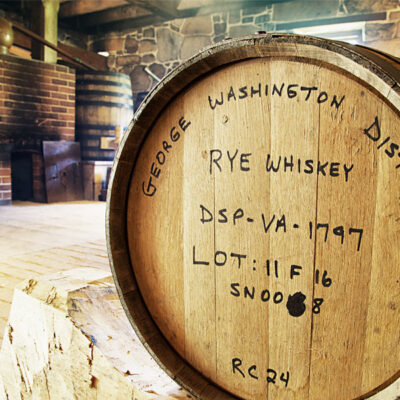 GEORGE WASHINGTON DIST
RYE WHISKEY
DSP-VA-1797
LOT: 11 F 16
SN00 8
RC24